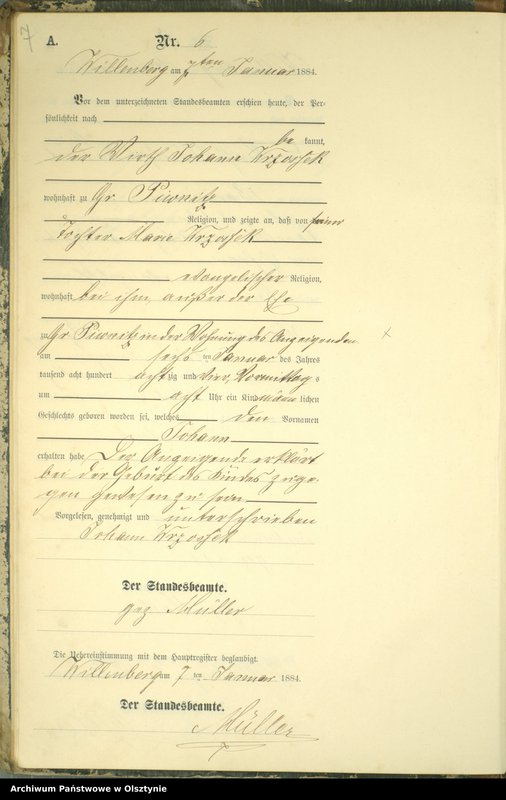 7
A. Nr. 6
Willenberg am 7ten Januar 1884.
Vor dem unterzeichneten Standesbeamten erschien heute, der Per-
sönlichkeit nach
be kannt,
der Wirth Johann Krzossek
wohnhaft zu Gr Piwnitz
Religion, und zeigte an, daß von seiner
Tochter Marie Krzossek
evangelischer Religion,
wohnhaft bei ihm, außer der Ehe
zu Gr Piwnitz in der Wohnung des Anzeigenden
am sechs ten Januar des Jahres
tausend acht hundert achtzig und vier, Vormittag s
um acht Uhr ein Kind männ lichen
Geschlechts geboren worden sei, welches den Vornamen
Johann
erhalten habe. Der Anzeigende erklärt
bei der Geburt des Kindes zuge-
gen gewesen zu sein
Vorgelesen, genehmigt und unterschrieben
Johann Krzossek
Der Standesbeamte.
gez Müller
Die Uebereinstimmung mit dem Hauptregister beglaubigt.
Willenberg am 7 ten Januar 1884.
Der Standesbeamte.
Müller
Archiwum Państwowe w Olsztynie